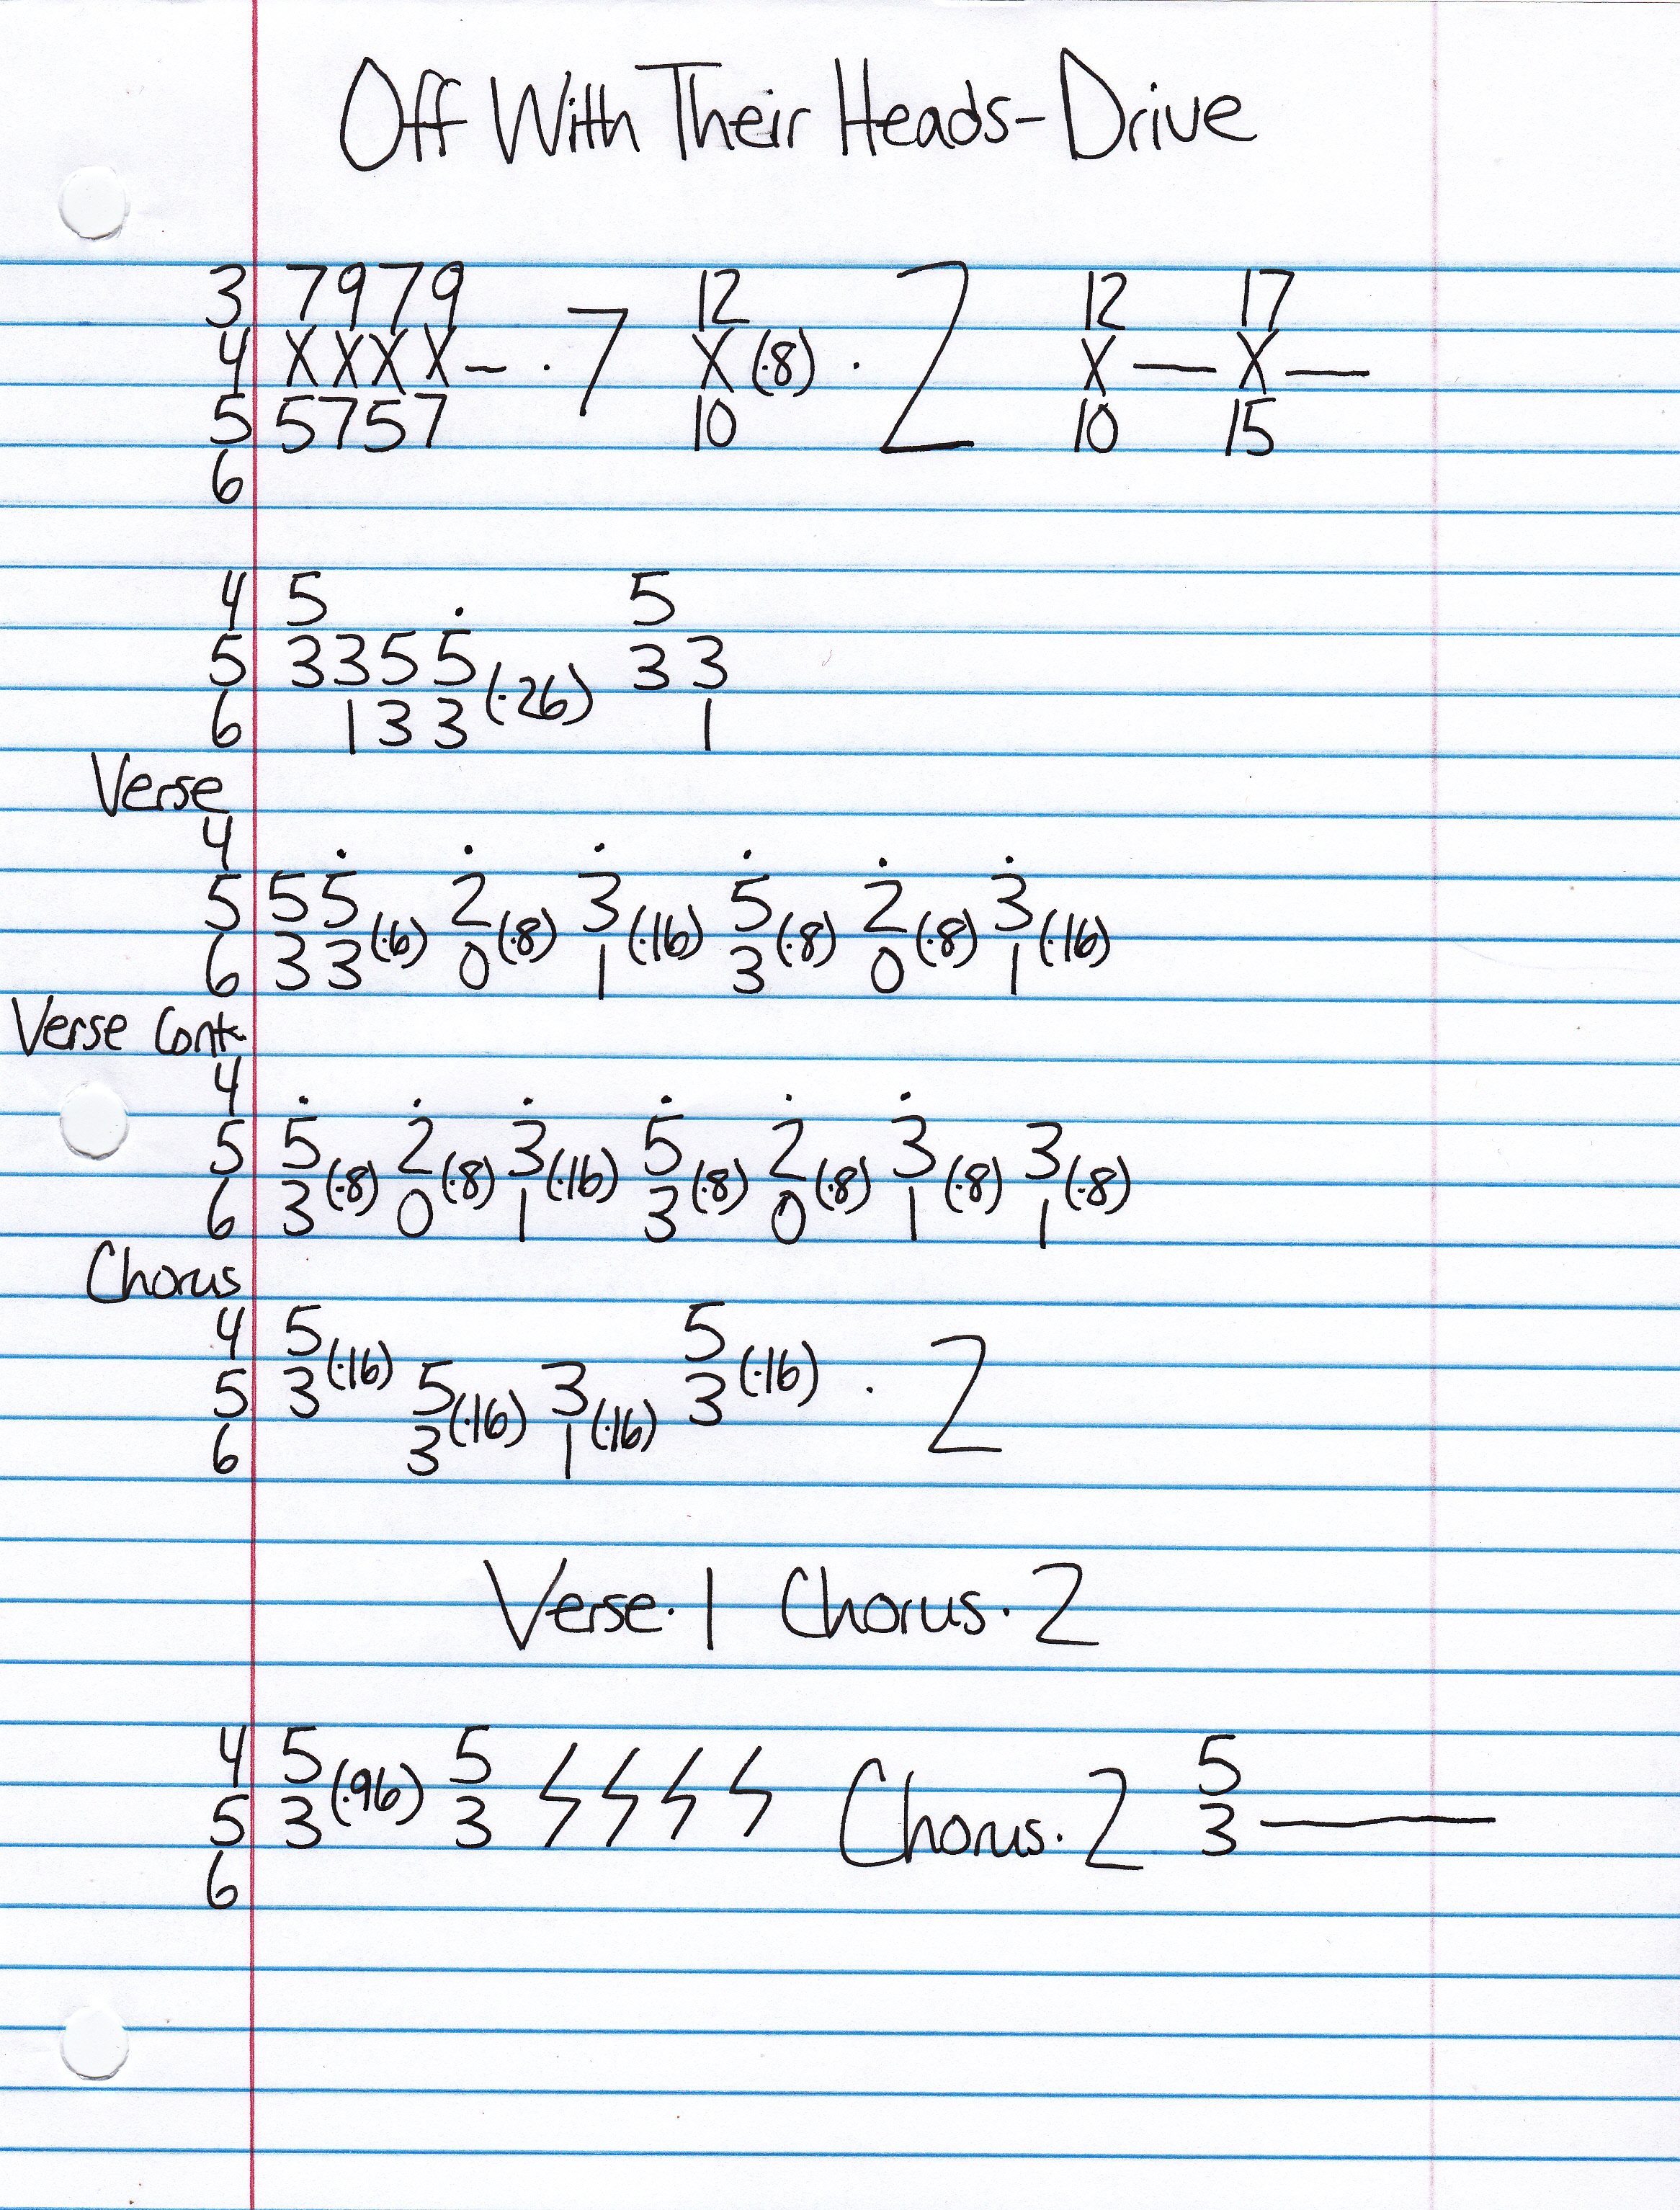 Off With Their Heads-Drive
3 7 9 7 9 12 12 17
4 X X X X - · 7 X (·8) · 2 X — X —
5 5 7 5 7 10 10 15
6
4 5 · 5
5 3 3 5 5 (·26) 3 3
6 1 3 3 1
Verse
4 · · · · · ·
5 5 5 2 3 5 2 3
6 3 3 (·6) 0 (·8) 1 (·16) 3 (·8) 0 (·8) 1 (·16)
Verse Cont.
4 · · · · · ·
5 5 2 3 5 2 3 3
6 3 (·8) 0 (·8) 1 (·16) 3 (·8) 0 (·8) 1 (·8) 1 (·8)
Chorus
4 5 5
5 3 (·16) 5 3 3 (·16) · 2
6 3 (·16) 1 (·16)
Verse·1 Chorus·2
4 5 5 5
5 3 (·96) 3 Chorus·2 3 —
6